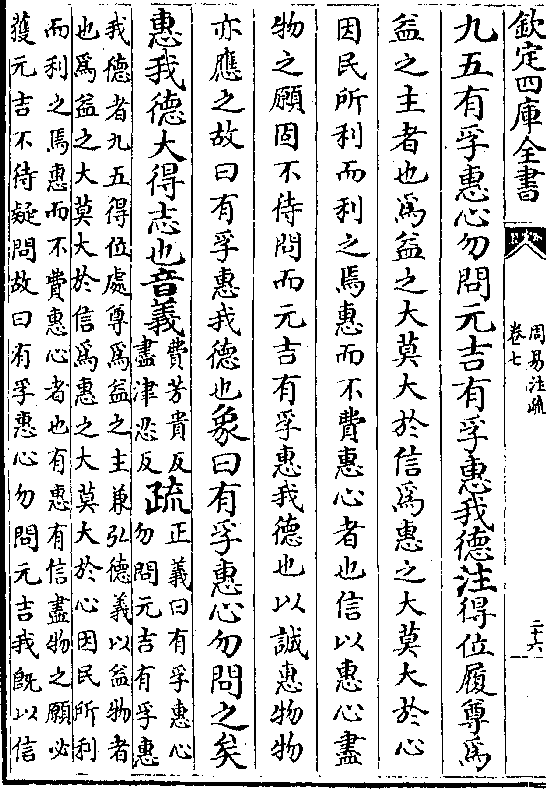 欽定四庫全書
周易注疏
卷七
二十六
九五有孚惠心勿問元吉有孚惠我德注得位履尊為
益之主者也為益之大莫大於信為惠之大莫大於心
因民所利而利之焉惠而不費惠心者也信以惠心盡
物之願固不待問而元吉有孚惠我德也以誠惠物物
亦應之故曰有孚惠我德也象曰有孚惠心勿問之矣
惠我德大得志也音義費芳貴反
盡津忍反
疏正義曰有孚惠心
勿問元吉有孚惠
我德者九五得位處尊為益之主兼弘德義以益物者
也為益之大莫大於信為惠之大莫大於心因民所利
而利之焉惠而不費惠心者也有惠有信盡物之願必
獲元吉不待疑問故曰有孚惠心勿問元吉我既以信